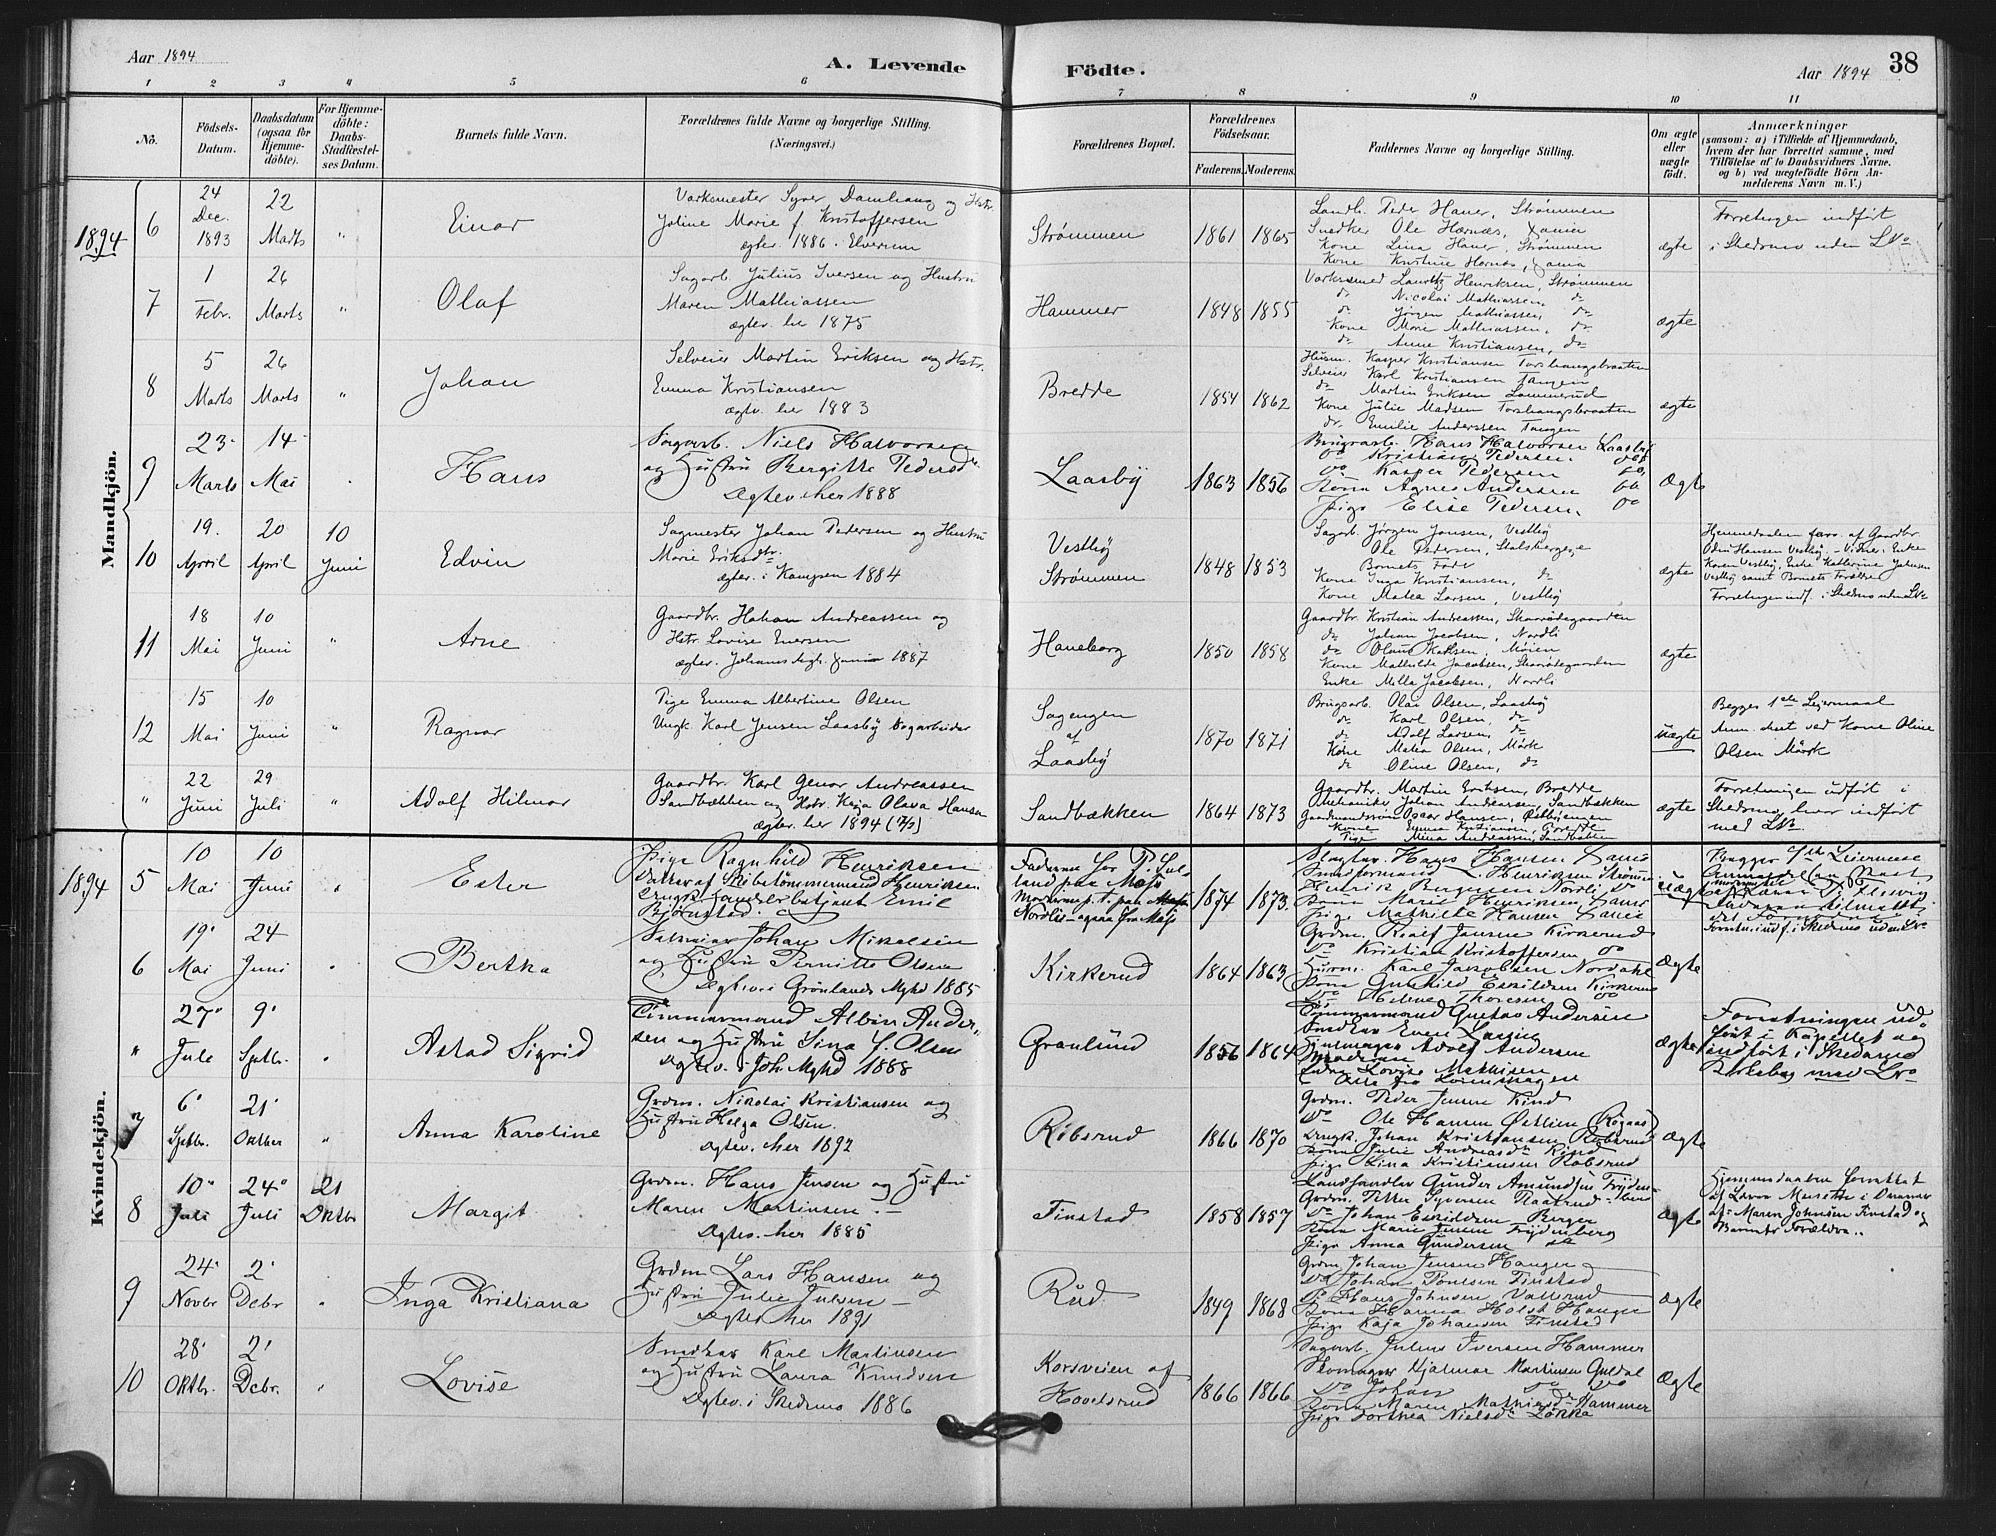 Aar 1894
A. Levende Födte.
Aar 1894 38
1 2 3 4 5 6 7 8 9 10 11
No.
Födsels-Datum.
Daabsdatum (ogsaa for Hjemmedöbte).
For Hjemmedöbte: Daabs-Stadfæstelses Datum.
Barnets fulde Navn.
Forældrenes fulde Navne og borgerlige Stilling.
(Næringsvei.)
Forældrenes Bopæl.
Forældrenes Födselsaar.
Faderens. Moderens.
Faddernes Navne og borgerlige Stilling.
Om ægte eller uægte födt.
Anmærkninger
(saasom: a) i Tilfælde af Hjemmedaab, hvem der har forrettet samme, med Tilföielse af to Daabsvidners Navne. og b) ved uægtefödte Börn Anmelderens Navn m. V.)
Mandkjön.
1894
6
24 Dec. 1893
22 Marts
"
Einar
Marie f Kristoffersen
ægtev. 1886. Elverum
Strømmen
1861 1865
Landh. Peder Haner, Strømmen
Snedker Ole Hærnæs,
Kone Lina Haner, Strømmen
Kone Kristine Hærnæs,
ægte
Forretningen indført
i Skedsmo uden L№
7
1 Febr.
26 Marts
"
Olaf
Sagarb. Julius Iversen og Hustru
Maren Mathiassen
ægtev. her 1875
Hammer
1848 1855
Henriksen, Strømmen
do Nicolai Mathiassen, do
do Jörgen Mathiassen, do
Kone Marie Mathiassen, do
do Anne Kristiansen, do
ægte
8
5 Marts
26 Marts
"
Johan
Selveier Martin Eriksen og Hstr.
Emma Kristiansen
ægtv. her 1883
Bredde
1854 1862
Husm. Kasper Kristiansen Torshaugbraaten
Selveier Karl Kristiansen Tangen
do Martin Eriksen Lammerud
Kone Julie Madsen Torshaugbraaten
do. Emilie Anderssen Tangen
ægte
9
23 Marts
14 Mai
Hans
Sagarb. Niels Halvorsen
og Hustru Bergitte Pedersdr.
Ægtev. her 1888
Laasby
1863 1856
Brugsarb. Hans Halvorsen Laasby
do Kristian Pedersen
do Kasper Pedersen do
Kona Agnes Andersen do
Pige Elise Pedersen, do
Ægte
10
19. April
20 April
10 Juni
Edvin
Sagmester Johan Pedersen og Hustru
Marie Eriksdtr.
ægtev. i Kampen 1884
Vestby
Strømmen
1848 1853
Sagarb. Jørgen Jonsen, Vestby
Ole Pedersen, Stalsbergeje
Barnets Fader
Kone Inga Kristiansen, do
Kone Matea Larsen, Vestby
ægte
Hjemmedaaben forr. af Gaardbr.
Odin Hansen Vestby, - Vidner: Enke
Karen Vestby, Enke Katherine Johnsen
Vestby samt Barnets Forældre
Forretningen indf. i Skedsmo uden L№
11
18 Mai
10 Juni
"
Arne
Gaardbr. Johan Andreassen og
Hstr. Lovise Enersen
1887
Haneborg
1850 1858
Gaardbr. Kristian Andreassen, Skaarødegaarden
do Johan Jacobsen, Nordli
do Olaus Karlsen, Moien
Kone Mathilde Jacobsen, Skaarødegaarden
Enke Milla Jacobsen, Nordli
ægte
12
15 Mai
10 Juni
"
Ragnar
Pige Emma Albertine Olsen
Ungk. Karl Jensen Laasby Sagarbeider
Sagengen
af
Laasby
1870 1871
Brugsarb. Olai Olsen, Laasby
do Karl Olsen, do
do Adolf Larsen, do
Kone Matea Olsen, Mörk
do Oline Olsen, do
uægte
Begges 1ste Leiermaal
Anm. sket ved Kone Oline
Olsen Mörk
"
22 Juni
29 Juli
"
Adolf Hilmar
Gaardbr. Karl Genar Andreassen
Sandbækken og Hstr. Kaja Olava Hansen
ægtev. her 1894
Sandbækken
1864 1873
Gaardbr. Martin Eriksen, Bredde
Mekaniker Johan Andersen, Sandbækken
Gaardmandssøn Oscar Hansen, Østbyengen
Kone Emma Kristiansen, Bredde
Pige Mina Andreassen, Sandbækken
ægte
Forretningen udført i
Skedsmo, hvor indført
med L№.
Kvindekjön.
1894
5
10 Mai
10 Juni
"
Ester
Pige Ragnhild Henriksen
Datter af Skibstømmermand Henriksen.
Ungk. Handelsbetjent Emil
Bjørnstad.
1874 1873.
Slagter Hans Hansen
Henrik Bergersen Nordli do
Kona Marie Henriksen
Pige Mathilde Hansen
Uægte
Begges 1ste Leiermaal
Forretn. indf. i Skedsmo uden L№
6
19 Mai
24 Juni
"
Bertha
Selveier Johan Mikalsen
og Hustru Pernitte Olsen
Ægtev. i Grønlands Mghd 1885
Kirkerud
1864 1863
Grdm. Roalf Jensen Kirkerud
do Kristian Kristoffersen do
Husm. Karl Jakobsen Nordahl
Kona Gunhild Eskildsen Kirkerud
do Helene Thoresen do
Ægte
"
27 Juli
9 Septbr.
"
Astad Sigrid
Tømmermand Albin Ander-
sen og Hustru Sina f. Olsen
Ægtev. i Joh. Mghd 1888
Granlund
1856 1864
Tömmermand Gustav Andersen
Snedker Even Larsen
Adolf Andersen
Moderen
Lovise Mathisen
Ægte
Forretningen ud-
ført i Kapellet og
indført i Skedsmo
Kirkebog med L№
7
6 Septbr.
21 Oktber
"
Anna Karoline
Grdm. Nikolai Kristiansen og
Hustru Helga Olsen.
Ægtev. her 1892
Robsrud
1866 1870
Grdm. Peder Jensen Rind
do Ole Hansen Østlien (Røgaas)
Ungk. Johan Kristiansen Robsrud
Kona Julie Andreasdr Rind
Pige Lina Kristiansen Robsrud
Ægte
8
10 Juli
24 Juli
21 Oktbr
Margit
Grdm. Hans Jensen og Hustru
Maren Martinsen. —
Ægtev. her 1885
Finstad
1858 1857
Landhandler Gunder Amundsen Frydenberg
Grdm. Petter Syversen Raakrud
do Johan Eskildsen Berger
Kona Marie Jensen Frydenberg
Pige Anna Gundersen do
Ægte
Hjemmedaaben forrettet
af Maren Johnsen Finstad og
Barnets Forældre..
9
24 Novbr
2 Debr
"
Inga Kristiana
Grdm Lars Hansen og
Hustru Julie Julsen —
Ægtev. her 1891
Rud
1849 1868
Grdm Johan Jensen Hanger
do Johan Poulsen Finstad
do Hans Johnsen Vallerud
Kona Hanna Holst Hanger
Pige Kaja Johansen Finstad
Ægte
10
28 Oktbr.
2 Debr.
"
Lovise
Snedker Karl Martinsen
og Hustru Laura Knudsen
Ægtev. i Skedsmo 1886
Korsveien af
Hovelsrud
1866 1866
Sagarb. Julius Iversen Hammer
Skomager Hjalmar Martinsen Guldal
do Johan do do
Kona Maren Mathiasdr Hammer
Pige Dorthea Nielsdr Løkka
Ægte